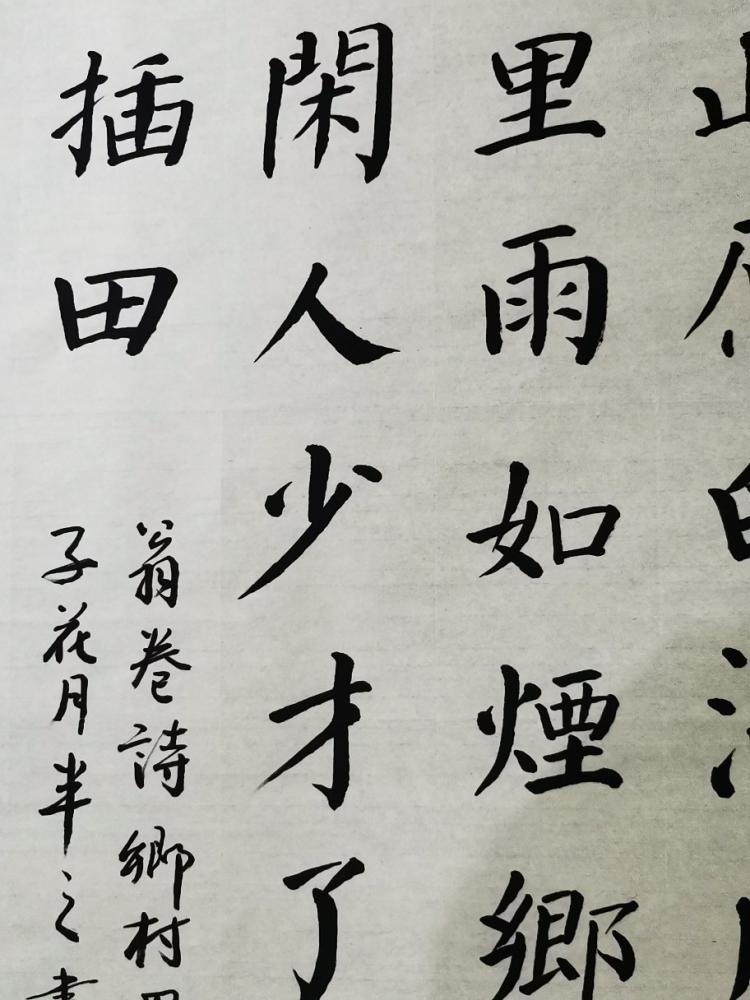 里雨如煙鄉
閑人少才了
插田
翁卷詩鄉村四
子花月半之書